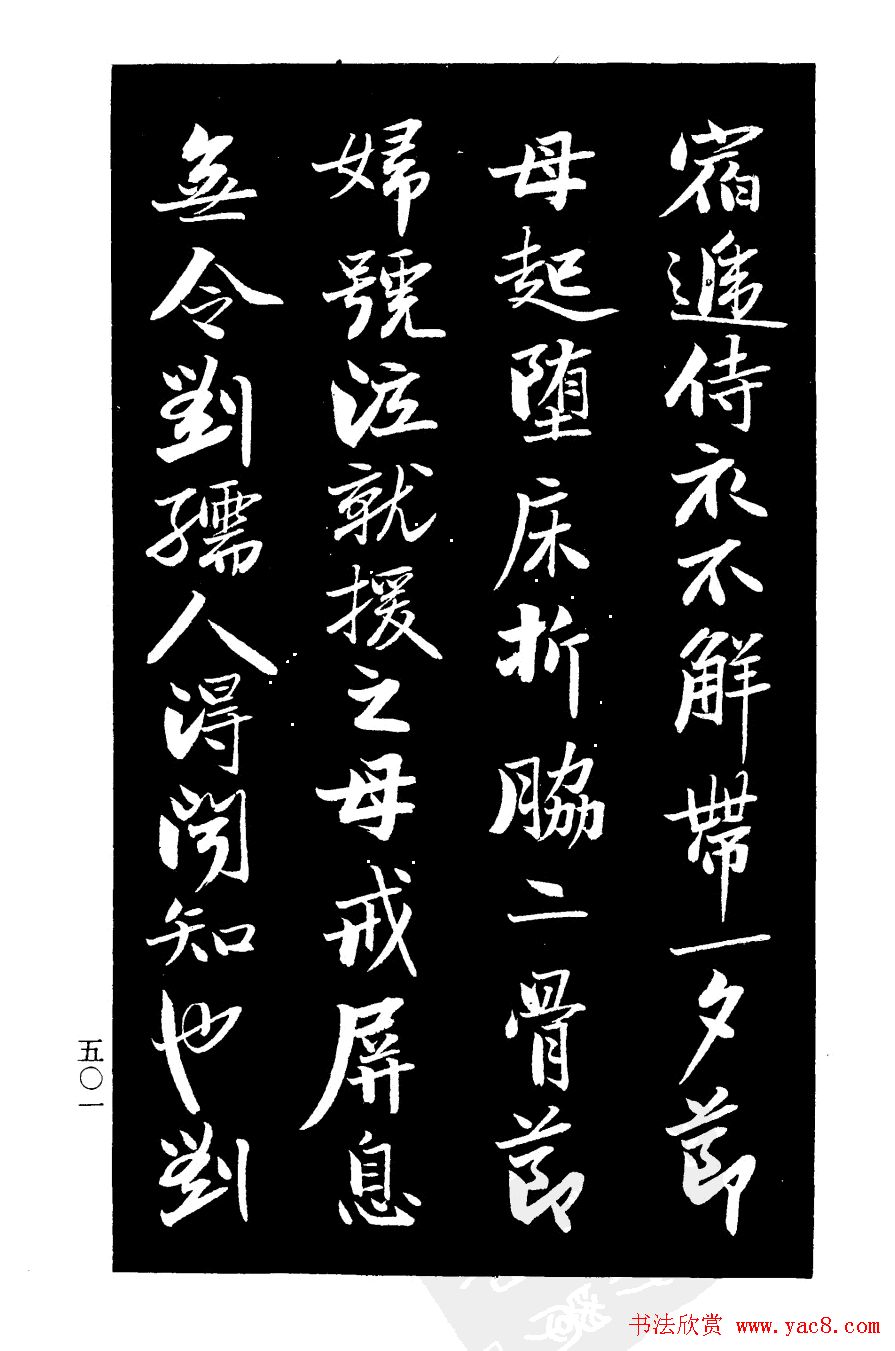 宿遞侍衣不解帶一夕節
母起堕床折脇二骨節
婦號泣就援之母戒屏息
無令劉孺人得聞知也劉
五〇一
书法欣赏 www.yac8.com